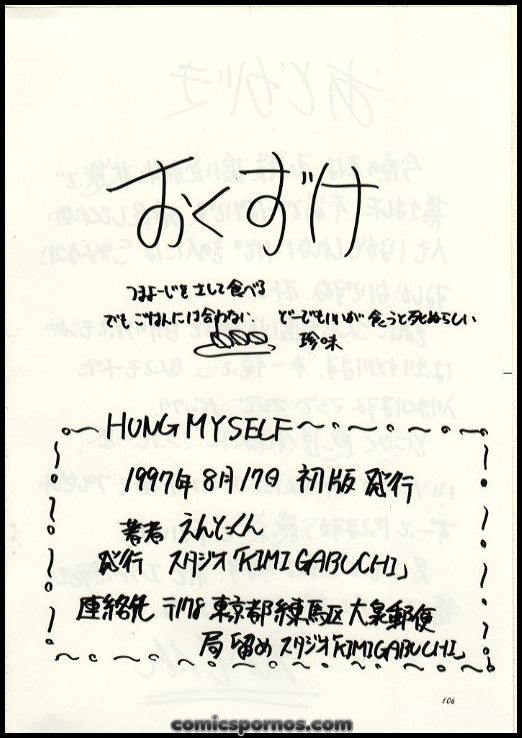 おくずけ
つまよーじを立して食べる
でもごはんには合わない。
どーでもいいが食うと死ぬらしい
珍味
HUNG MYSELF
1997年8月17日 初版発行
著者 えんどくん
発行 スタジオ「KIMIGABUCHI」
連絡先 〒178 東京都練馬区大泉郵便
局留めスタジオ「KIMIGABUCHI」
106
comicspornos.com